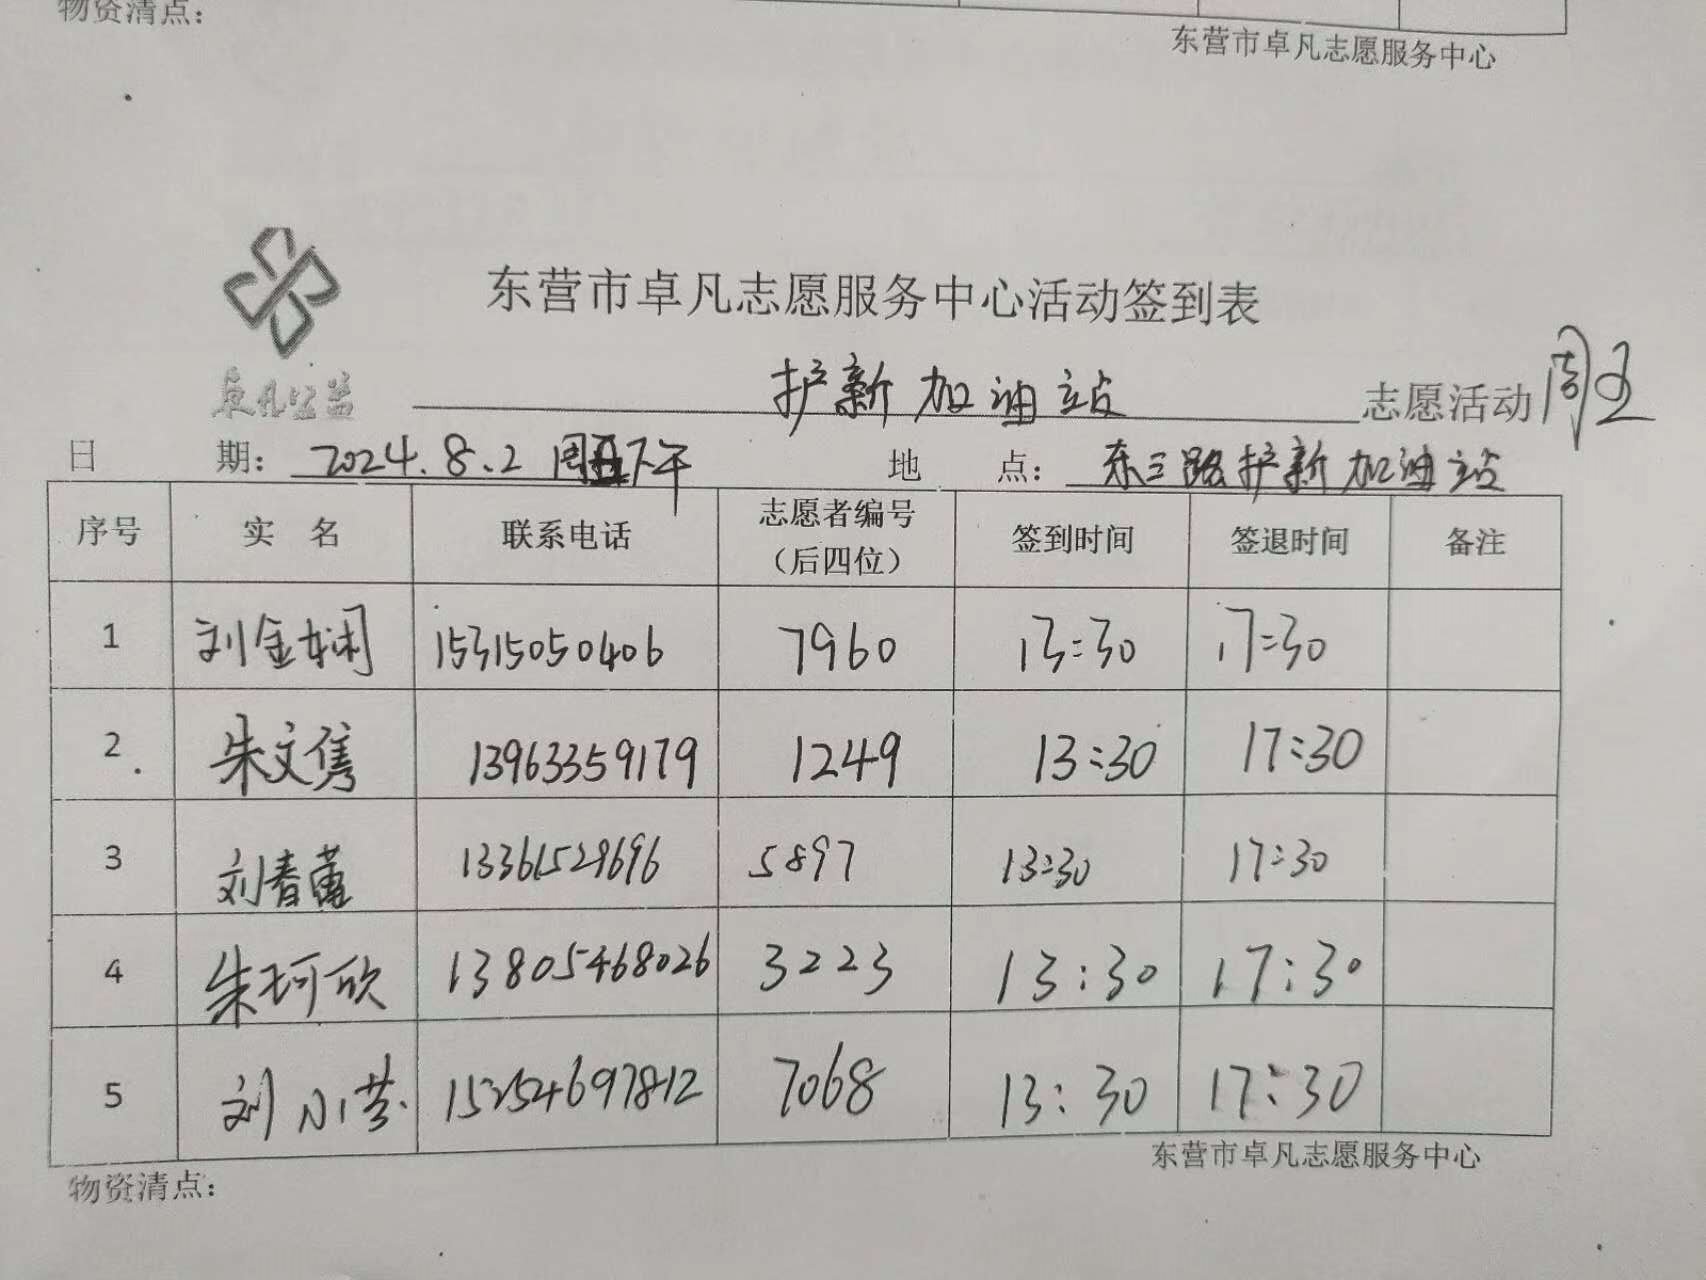 物资清点：
东营市卓凡志愿服务中心
东营市卓凡志愿服务中心活动签到表
卓凡公益
护新加油站 志愿活动 周五
日 期： 2024.8.2 周五下午 地 点： 东三路护新加油站
序号 实 名 联系电话 志愿者编号（后四位） 签到时间 签退时间 备注
1 刘金娴 15315050406 7960 13:30 17:30
2 朱文隽 13963359179 1249 13:30 17:30
3 刘春 13361529696 5897 13:30 17:30
4 朱珂欣 13805468026 3223 13:30 17:30
5 刘小芸 15254697812 7068 13:30 17:30
东营市卓凡志愿服务中心
物资清点：